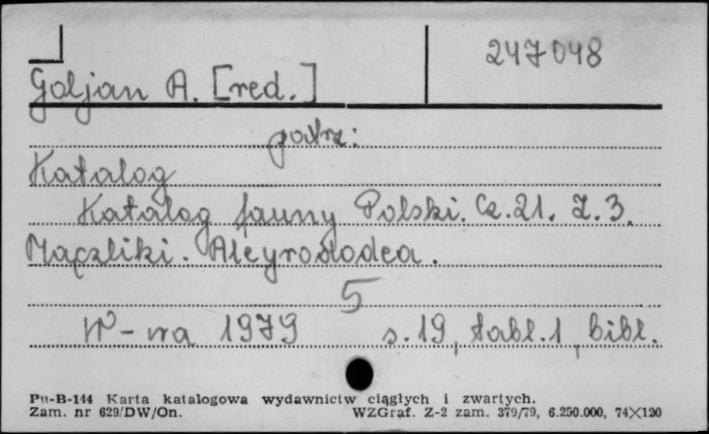 247048
Goljan A. [red.]
patrz:
Katalog
Katalog fauny Polski. Cz.21. Z.3.
Mączliki. Aleyrododea.
5
W-wa 1979 s.19, tabl.1, bibl.
Pu-B-144 Karta katalogowa wydawnictw ciągłych i zwartych.
Zam. nr 629/DW/On. WZGraf. Z-2 zam. 379/79, 6.250.000, 74×120